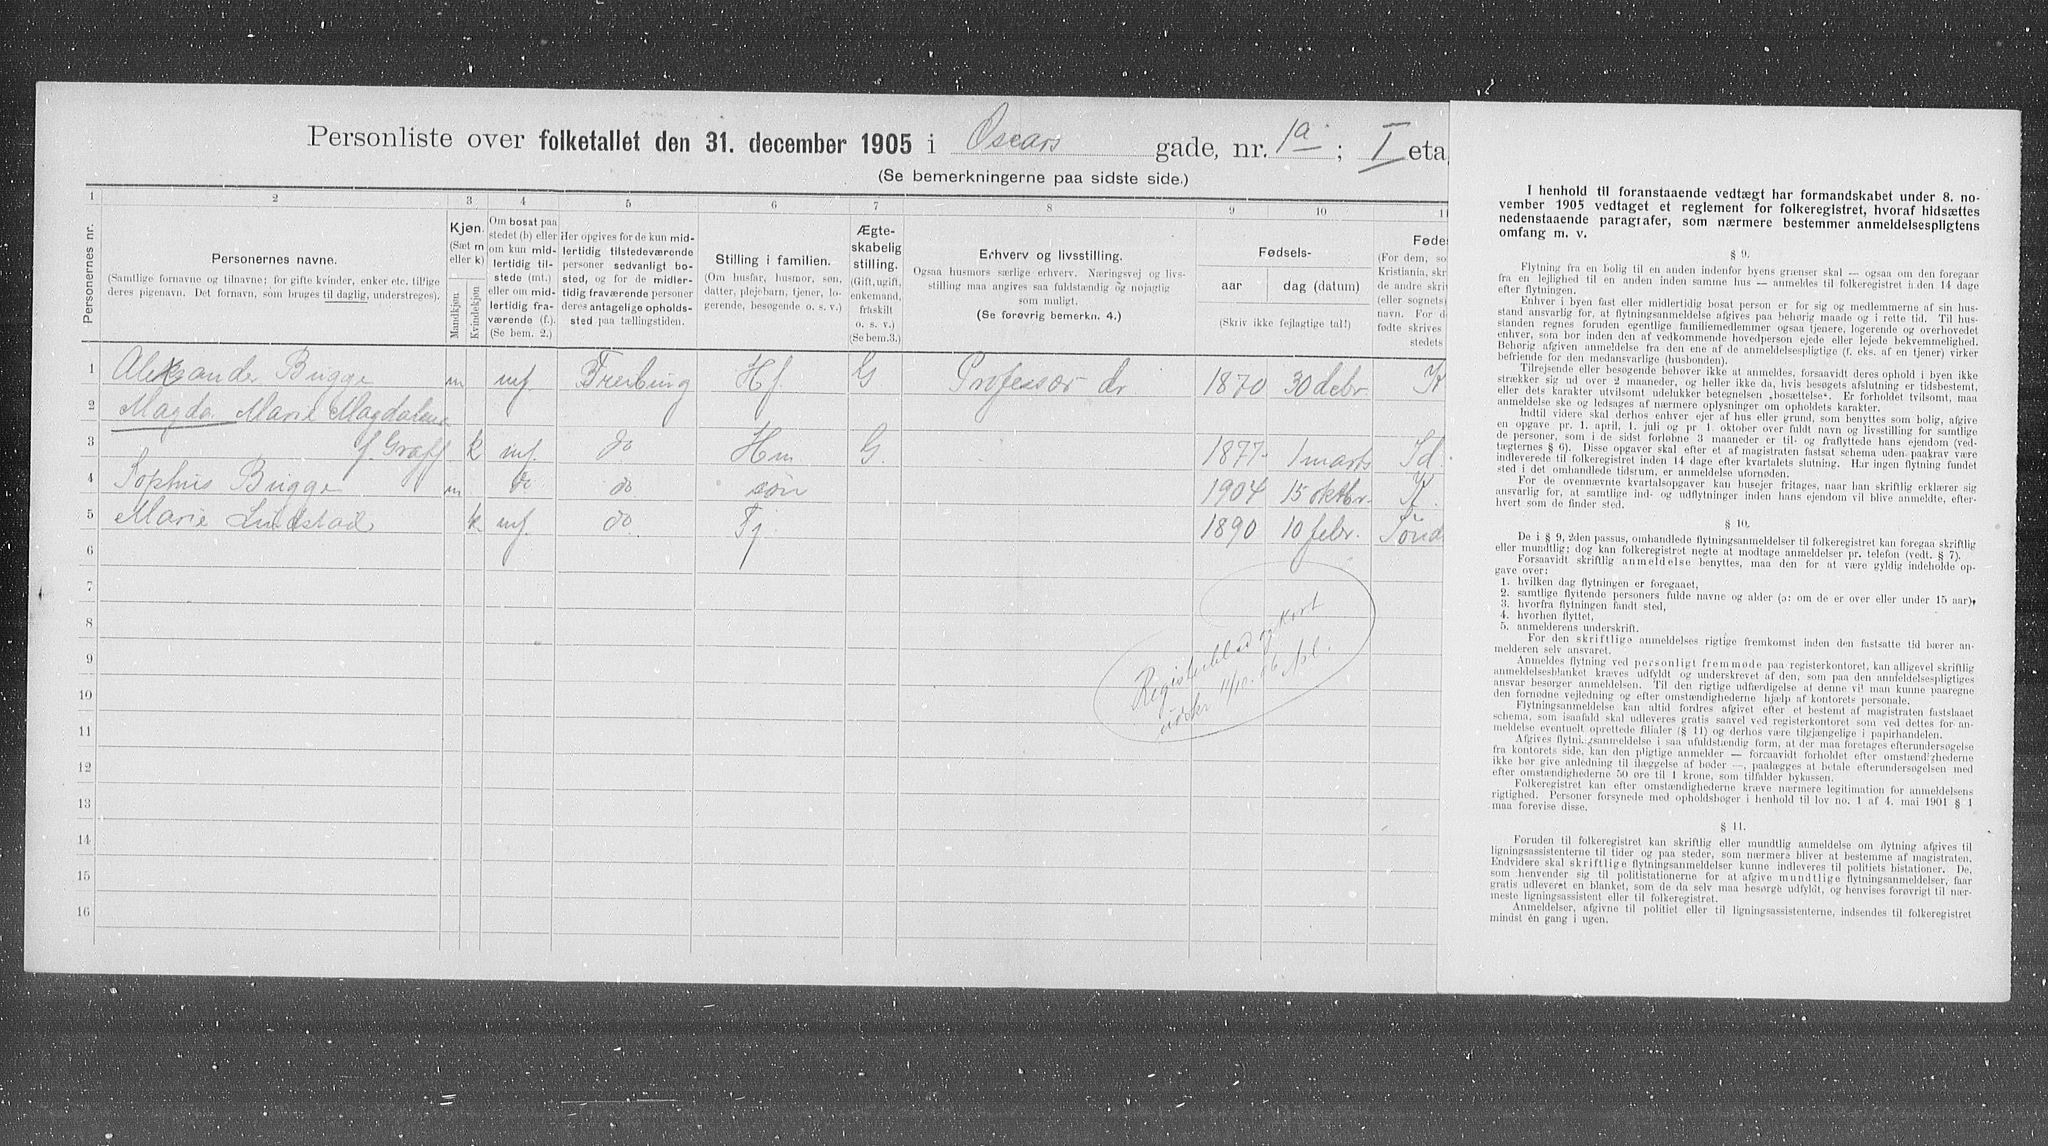 Personliste over folketallet den 31. december 1905 i Oscars gade, nr. 1a ; I eta
(Se bemerkningerne paa sidste side.)
1 2 3 4 5 6 7 8 9 10 11
Personernes nr.
Personernes navne.
(Samtlige fornavne og tilnavne; for gifte kvinder, enker etc. tillige
deres pigenavn. Det fornavn, som bruges til daglig, understreges).
Kjøn.
(Sæt m
eller k)
Mandkjøn
Kvindekjøn
Om bosat paa
stedet (b) eller
om kun mid-
lertidig til-
stede (mt.)
eller om mid-
lertidig fra-
værende (f.).
(Se bem. 2.)
Her opgives for de kun mid-
lertidig tilstedeværende
personer sedvanligt bo-
sted, og for de midler-
tidig fraværende personer
deres antagelige opholds-
sted paa tællingstiden.
Stilling i familien.
(Om husfar, husmor, søn,
datter, plejebarn, tjener, lo-
gerende, besøgende o. s. v.)
Ægte-
skabelig
stilling.
(Gift, ugift,
enkemand,
fraskilt
o. s. v.)
(Se bem.3.)
Erhverv og livsstilling.
Ogsaa husmors særlige erhverv. Næringsvej og livs-
stilling maa angives saa fuldstændig og nøjagtig
som muligt.
(Se forøvrig bemerkn. 4.)
Fødsels-
aar dag (datum)
(Skriv ikke fejlagtige tal!)
Fødes
(For dem, so
Kristiania, skr
de andre skrif
(eller sognets)
navn. For de
fødte skrives
stedets
1 Alexander Bugge m mf. Freiburg Hf G Professor dr 1870 30 debr. K
2 Magda Marie Magdalena
3 f. Graff k mf. do Hm G. 1877 1 marts Id
4 Sophus Bugge m do do søn 1904 15 oktbr. K.
5 Marie Lundstad k mf. do. Tj. 1890 10 febr. Sønd
6
7
8
9
10
11
12
13
14
15
16
Registerblad og kort
udskr 11/10. 06
I henhold til foranstaaende vedtægt har formandskabet under 8. no-
vember 1905 vedtaget et reglement for folkeregistret, hvoraf hidsættes
nedenstaaende paragrafer, som nærmere bestemmer anmeldelsespligtens
omfang m. v.
§ 9.
Flytning fra en bolig til en anden indenfor byens grænser skal — ogsaa om den foregaar
fra en lejlighed til en anden inden samme hus — anmeldes til folkeregistret inden 14 dage
efter flytningen.
Enhver i byen fast eller midlertidig bosat person er for sig og medlemmerne af sin hus-
stand ansvarlig for, at flytningsanmeldelse afgives paa behørig maade og i rette tid. Til hus-
standen regnes foruden egentlige familiemedlemmer ogsaa tjenere, logerende og overhovedet
enhver, som bor inden den af vedkommende hovedperson ejede eller lejede bekvemmelighed.
Behørig afgiven anmeldelse fra den ene af de anmeldelsespligtige (f. eks. af en tjener) virker
befriende for den medansvarlige (husbonden).
Tilrejsende eller besøgende behøver ikke at anmeldes, forsaavidt deres ophold i byen ikke
strækker sig ud over 2 maaneder, og heller ikke da, hvis besøgets afslutning er tidsbestemt,
eller dets karakter utvilsomt udelukker betegnelsen „bosættelse“. Er forholdet tvilsomt, maa
anmeldelse ske og ledsages af nærmere oplysninger om opholdets karakter.
Indtil videre skal derhos enhver ejer af hus eller grund, som benyttes som bolig, afgive
en opgave pr. 1. april, 1. juli og pr 1. oktober over fuldt navn og livsstilling for samtlige
de personer, som i de sidst forløbne 3 maaneder er til- og fraflyttede hans ejendom (ved-
tægternes § 6). Disse opgaver skal efter et af magistraten fastsat schema uden paakrav være
indleverede til folkeregistret inden 14 dage efter kvartalets slutning. Har ingen flytning fundet
sted i det omhandlede tidsrum, er anmeldelse ufornøden.
For de ovennævnte kvartalsopgaver kan husejer fritages, naar han skriftlig erklærer sig
ansvarlig for, at samtlige ind- og udflytninger inden hans ejendom vil blive anmeldte, efter-
hvert som de finder sted.
§ 10.
De i § 9, 2den passus, omhandlede flytningsanmeldelser til folkeregistret kan foregaa skriftlig
eller mundtlig; dog kan folkeregistret negte at modtage anmeldelser pr. telefon (vedt. § 7).
Forsaavidt skriftlig anmeldelse benyttes, maa den for at være gyldig indeholde op-
gave over:
1. hvilken dag flytningen er foregaaet,
2. samtlige flyttende personers fulde navne og alder (ɔ: om de er over eller under 15 aar),
3. hvorfra flytningen fandt sted,
4. hvorhen flyttet,
5. anmelderens underskrift.
For den skriftlige anmeldelses rigtige fremkomst inden den fastsatte tid bærer an-
melderen selv ansvaret.
Anmeldes flytning ved personligt fremmøde paa registerkontoret, kan alligevel skriftlig
anmeldelsesblanket kræves udfyldt og underskrevet af den, som paa den anmeldelsespligtiges
ansvar besørger anmeldelsen. Til den rigtige udfærdigelse af denne vil man kunne paaregne
den fornødne vejledning og efter omstændighederne hjælp af kontorets personale.
Flytningsanmeldelse kan altid fordres afgivet efter et bestemt af magistraten fastslaaet
schema, som isaafald skal udleveres gratis saavel ved registerkontoret som ved dettes for an-
meldelse eventuelt oprettede filialer (§ 11) og derhos være tilgjængelige i papirhandelen.
Afgives flytningsanmeldelse i saa ufuldstændig form, at der maa foretages efterundersøgelse
fra kontorets side, kan den pligtige anmelder — forsaavidt forholdet efter omstændighederne
ikke bør give anledning til ilæggelse af bøder —, paalægges at betale efterundersøgelsen med
efter omstændighederne 50 øre til 1 krone, som tilfalder bykassen.
Folkeregistret kan efter omstændighederne kræve nærmere legitimation for anmeldelsens
rigtighed. Personer forsynede med opholdsbøger i henhold til lov no. 1 af 4. mai 1901 § 1
maa forevise disse.
§ 11.
Foruden til folkeregistret kan skriftlig eller mundtlig anmeldelse om flytning afgives til
ligningsassistenterne til tider og paa steder, som nærmere bliver at bestemme af magistraten.
Endvidere skal skriftlige flytningsanmeldelser kunne indleveres til politiets bistationer. De,
som henvender sig til politistationerne for at afgive mundtlige flytningsanmeldelser, faar
gratis udleveret en blanket, som de da selv maa besørge udfyldt, og henvises forøvrigt til nær-
meste ligningsassistent eller til folkeregistret.
Anmeldelser, afgivne til politiet eller til ligningsassistenterne, indsendes til folkeregistret
mindst én gang i ugen.